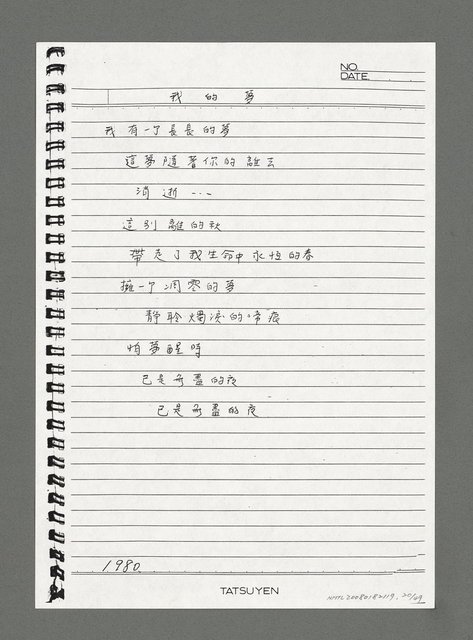 NO.
DATE
我的夢
我有一个長長的夢
這夢隨著你的離去
消逝...
這別離的秋
帶走了我生命中永恆的春
擁一个凋零的夢
靜聆燭淚的啼痕
怕夢醒時
已是無盡的夜
已是無盡的夜
1980.
TATSUYEN
NMTL20080182119, 20/69